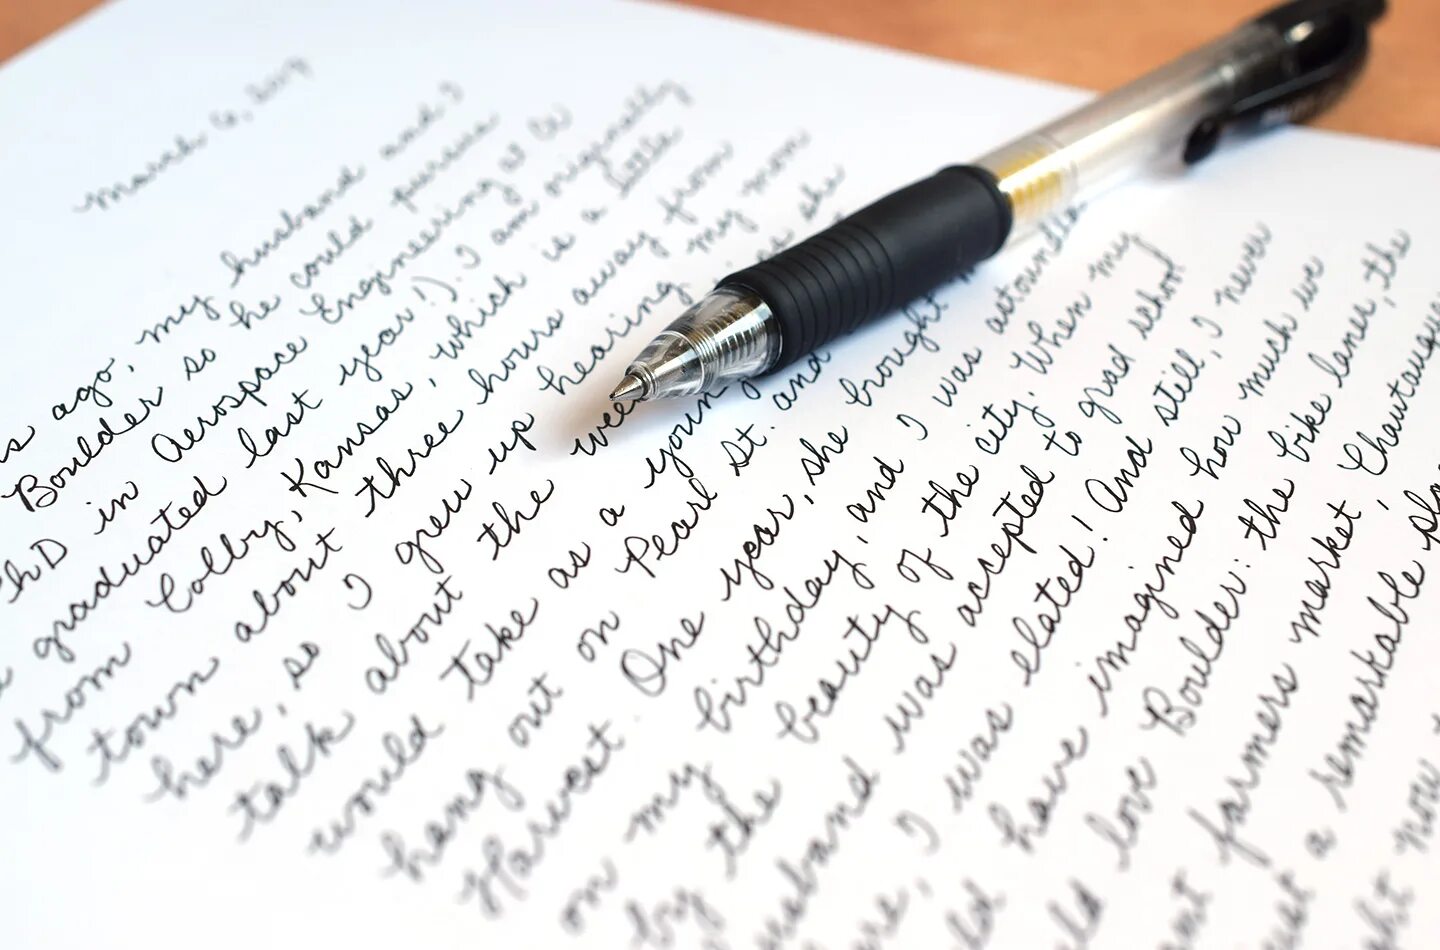 March 6,
ago, my husband and I
Boulder so he could pursue
PhD in Aerospace Engineering at
graduated last year!). I am originally
from Colby, Kansas, which is a little
town about three hours away from
here, so I grew up hearing my mom
talk about the she
would take as a young
hang out on Pearl St. and
Harvest. One year, she brought
on my birthday, and I was
by the beauty of the city. When my
usband was accepted to grad school
ere, I was elated! And still, I never
ld have imagined how much we
ld love Boulder: the bike lanes, the
farmers market, Chautauqu
a remarkable pla
ght now